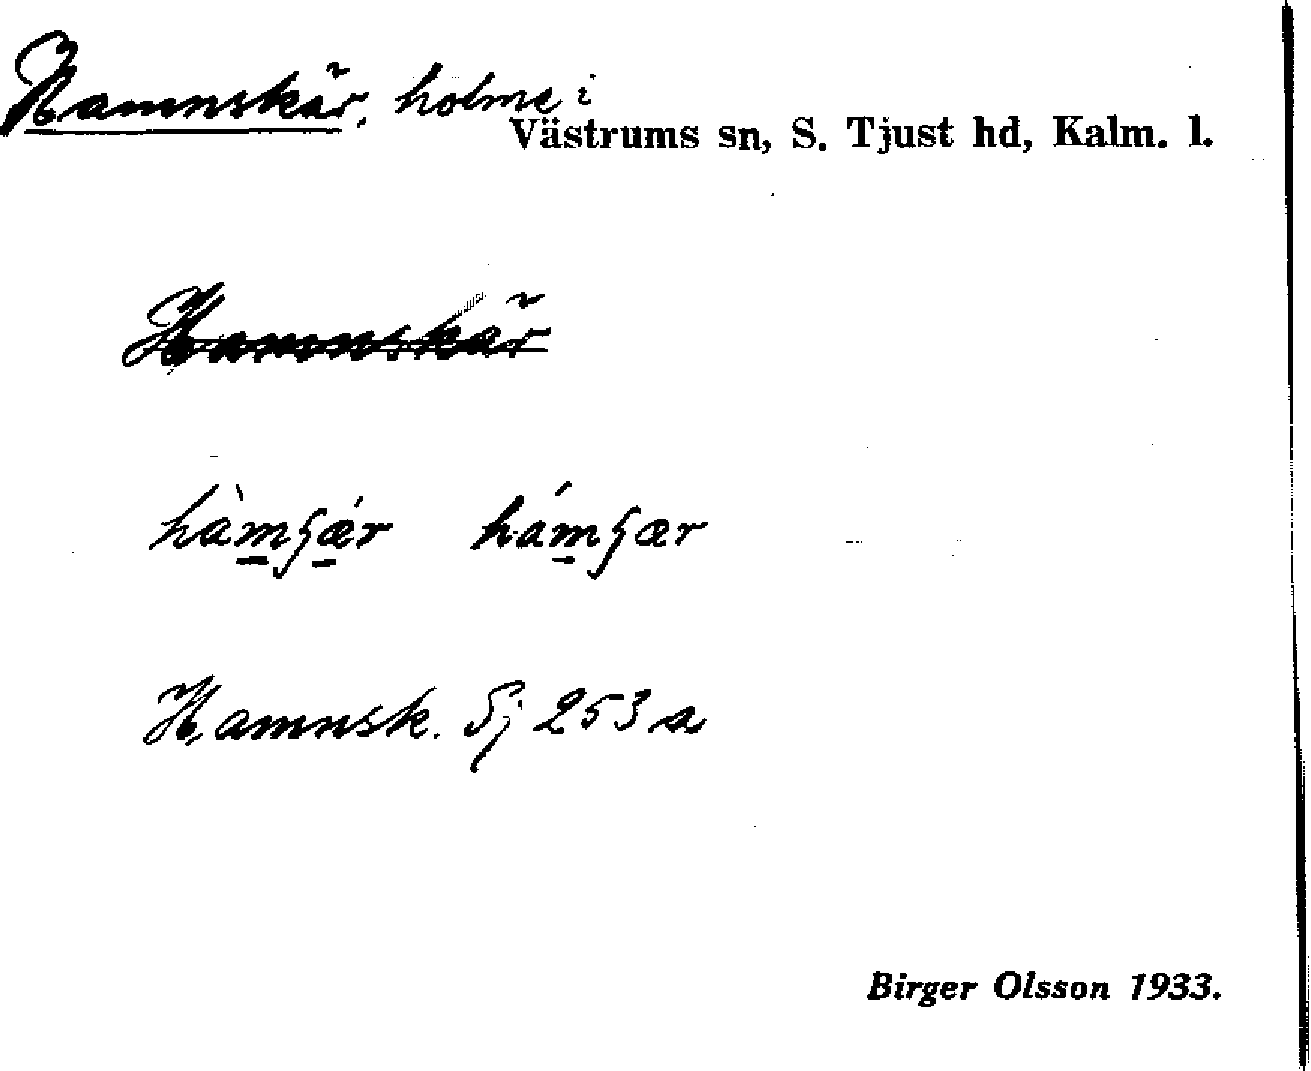 Hamnskär, holme i
Västrums sn, S. Tjust hd, Kalm. l.
Hamnskär
hàmʂǽr hámʂær
Hamnsk. Sj 253 a
Birger Olsson 1933.